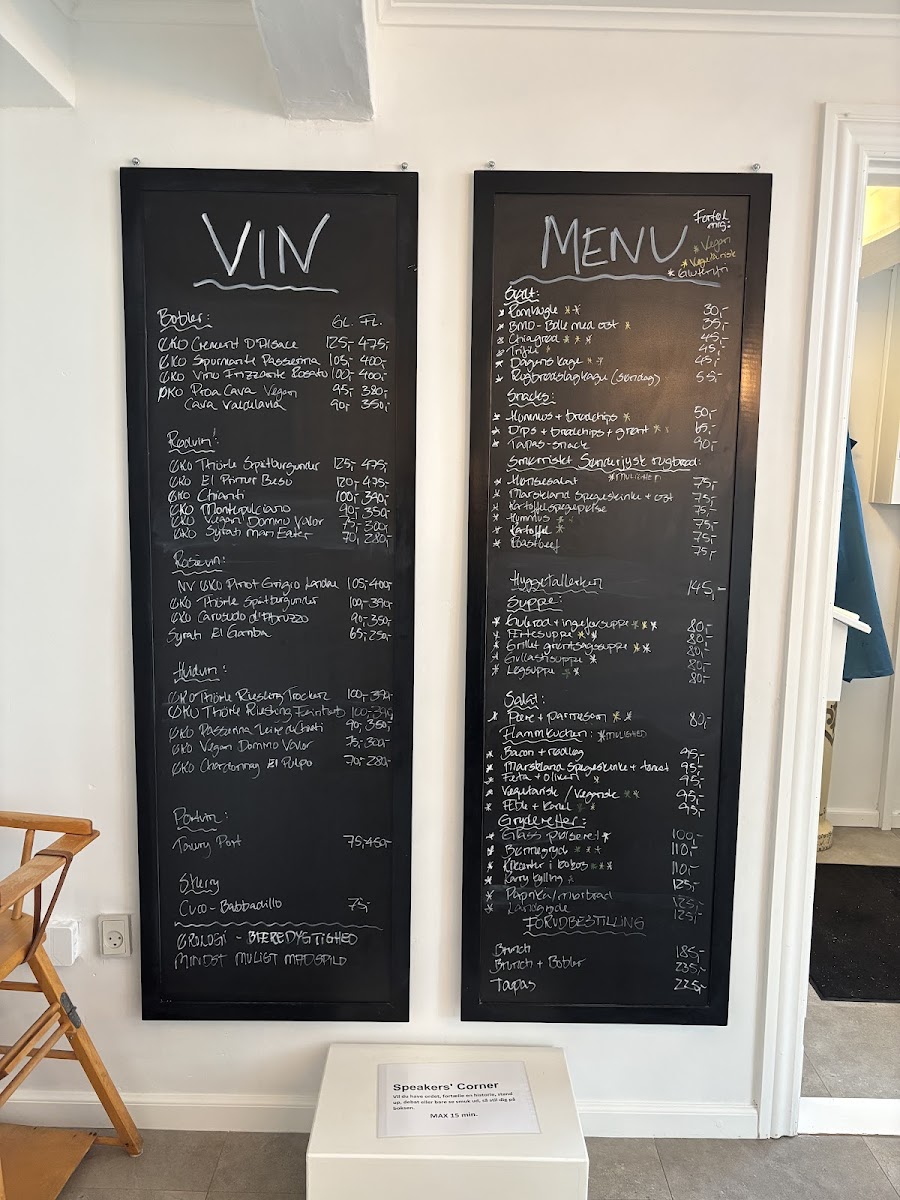 VIN
Bobler:
GL. FL.
ØKO Cremant D'Alsace 125,- 475,-
ØKO Spumante Passerina 105,- 400,-
ØKO Vino Frizzante Rosato 100,- 400,-
ØKO Proa Cava Vegan 95,- 380,-
Cava 90,- 350,-
Rødvin!
ØKO Thörle Spätburgunder 125,- 475,-
ØKO El Primer Besú 120,- 475,-
ØKO Chianti 100,- 390,-
ØKO Montepulciano 90,- 350,-
ØKO Vegan Dommo Valor 75,- 300,-
ØKO Syrah Man Eater 70,- 280,-
Rosévin:
NV ØKO Pinot Grigio 105,- 400,-
ØKO Thörle Spätburgunder 100,- 390,-
ØKO Cerasuolo d'Abruzzo 90,- 350,-
Syrah El Gamba 65,- 250,-
Hvidvin:
ØKO Thörle Riesling Trocken 100,- 390,-
ØKO Thörle Riesling Feinherb 100,- 390,-
ØKO Passerina 90,- 350,-
ØKO Vegan Dommo Valor 75,- 300,-
ØKO Chardonnay El Pulpo 70,- 280,-
Portvin:
Tawny Port 75,- 450,-
Sherry
Cuco - Babbadillo 75,-
ØKOLOGI - BÆREDYGTIGHED
MINDST MULIGT MADSPILD
MENU
Fortæl mig:
* Vegan
* Vegetarisk
* Glutenfri
Sødt:
* Romkugle * * 30,-
* BMO - Bolle med ost * 35,-
* Chiagrød * * * 45,-
* Trifli * 45,-
* Dagens kage * * 45,-
* Rugbrødslagkage (søndag) 55,-
Snacks:
* Hummus + brødchips * 50,-
* Dips + brødchips + grønt * 65,-
* Tapas-snack 90,-
Smørristet Sønderjysk rugbrød:
* MULIGHED
* Hønsesalat 75,-
* Marskland Spegeskinke + ost 75,-
* Kartoffelspegepølse 75,-
* Hummus * 75,-
* Kartoffel * 75,-
* Roastbeef 75,-
Hyggetallerken 145,-
Suppe:
* Gulerod + ingefærsuppe * * * 80,-
* Ærtesuppe * * 80,-
* Grillet grøntsagssuppe * * 80,-
* Gullashsuppe * 80,-
* Løgsuppe * * 80,-
Salat:
* Pære + parmesan * * 80,-
Flammkuchen: * MULIGHED
* Bacon + rødløg 95,-
* Marskland Spegeskinke + tomat 95,-
* Feta + oliven * 95,-
* Vegetarisk / Vegansk * * 95,-
* Æble + kanel * * 95,-
Gryderetter:
* 100,-
* Bønnegryde * * * 110,-
* Kikærter i kokos * * * 110,-
* Karry kylling * 125,-
* Paprika/mørbrad 125,-
* Landgryde 125,-
FORUDBESTILLING
Brunch 185,-
Brunch + Bobler 235,-
Tapas 225,-
Speakers' Corner
Vil du have ordet, fortælle en historie, stand
up, debat eller bare se smuk ud, så stil dig på
boksen.
MAX 15 min.